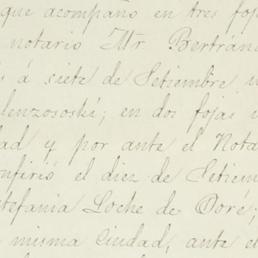 que acompaño en tres foj
notario Mr Bertrán
s á siete de Setiembre
lenzososhi; en dos fojas
dad y por ante el Nota
onfires el diez de Setiem
tefania Loche de Doré;
misma Ciudad, ante e